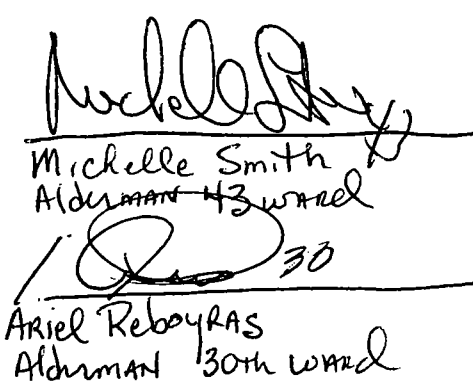 Michelle Smith
Michelle Smith
Alderman 43 ward
30
Ariel Reboyras
Alderman 30th ward